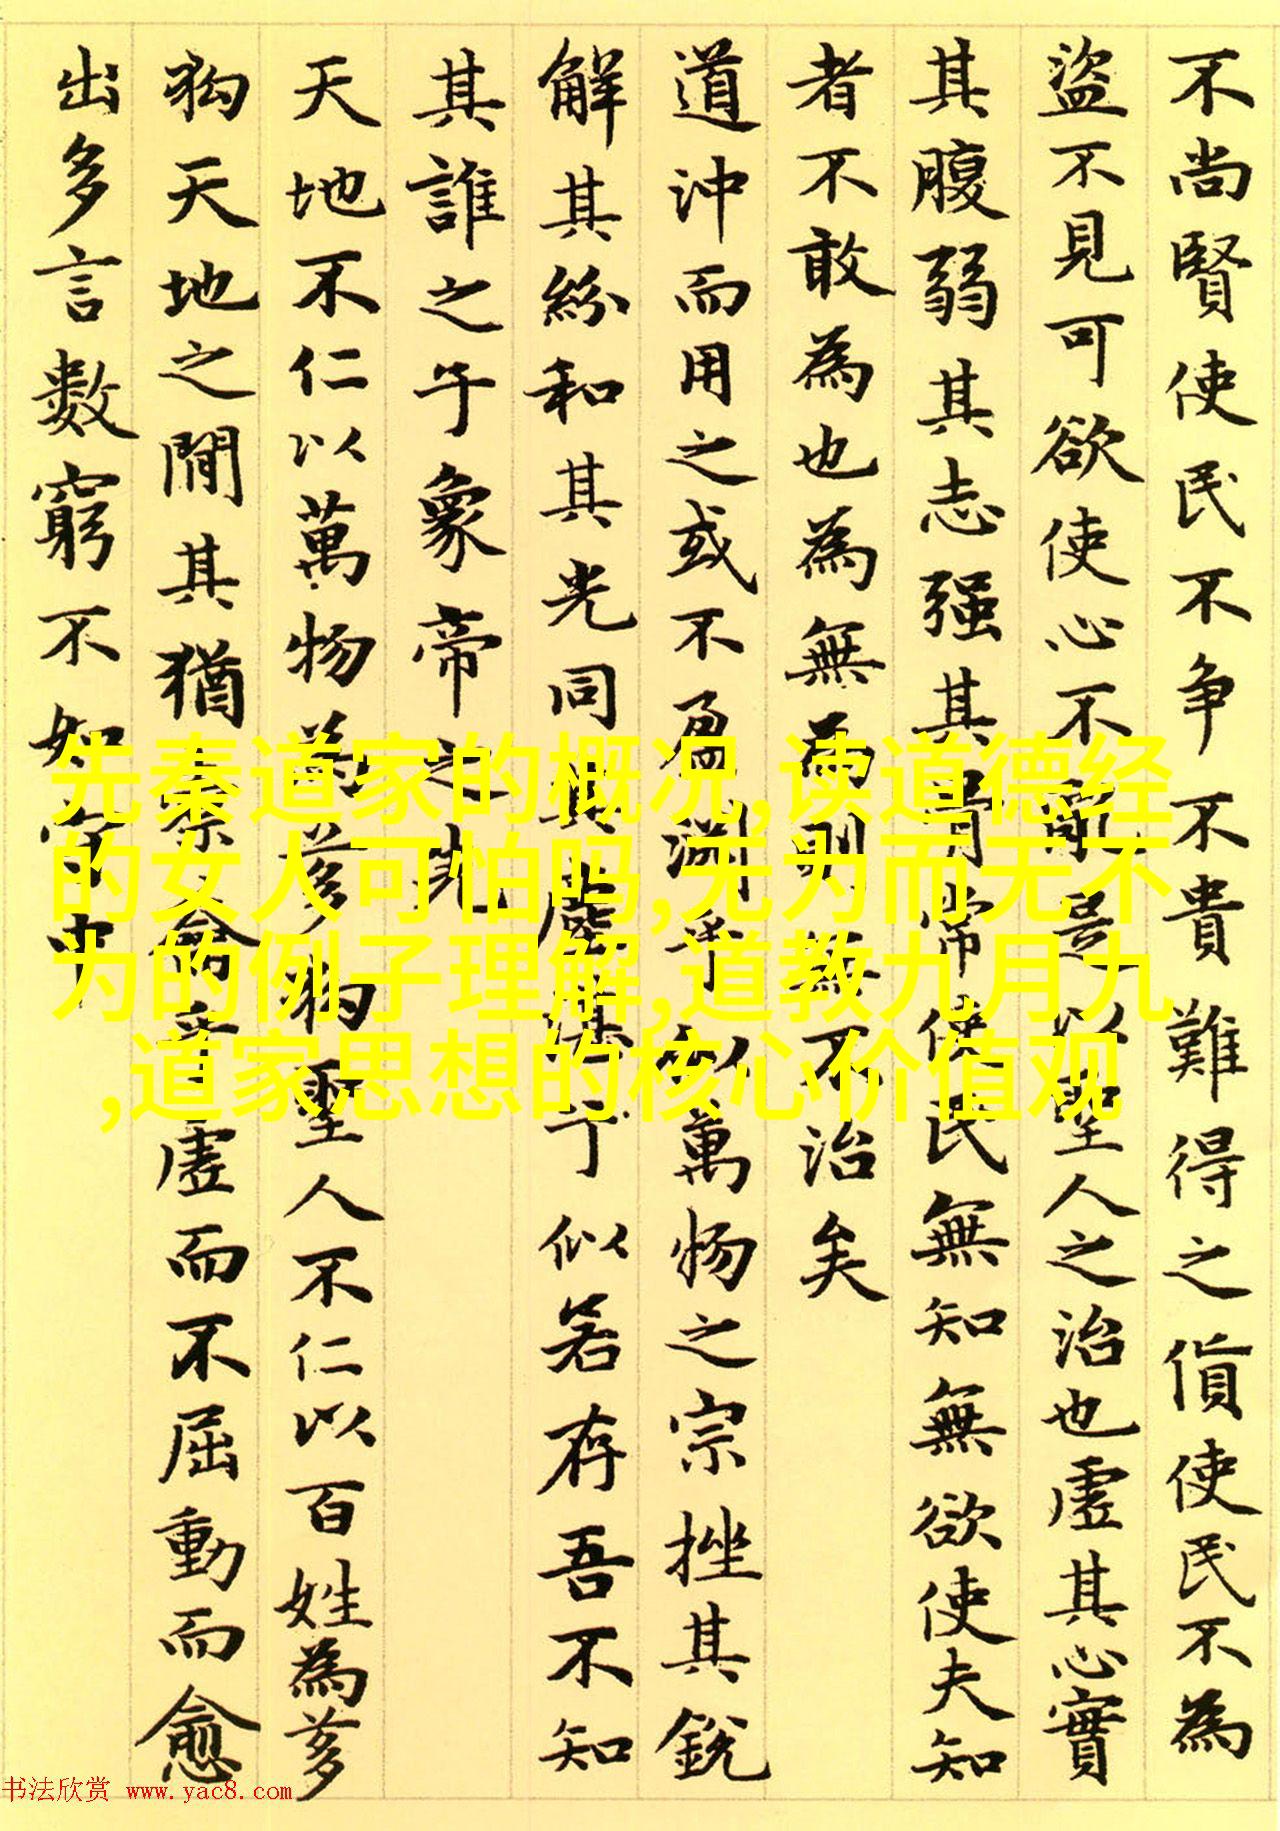 不尚賢使民不争不貴難得之貨使民不為
盜不見可欲使心不亂是以聖人之治也虛其心實
其腹弱其志强其骨常使民無知無欲使夫知
者不敢為也為無為則無不治矣
道沖而用之或不盈淵乎似萬物之宗挫其銳
解其紛和其光同其塵湛乎似若存吾不知
其誰之子象帝之先
天地不仁以萬物為芻狗聖人不仁以百姓為芻
狗天地之間其猶橐籥乎虛而不屈動而愈
出多言數窮不如守中
先秦道家的概况,读道德经
的女人可怕吗,无为而无不
为的例子理解,道教九月九
,道家思想的核心价值观
书法欣赏 www.yac8.com